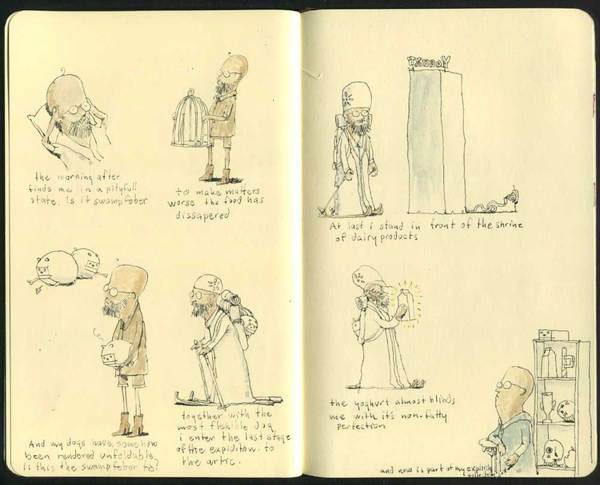 the morning after
finds me in a pityfull
state. Is it swampfeber
to make matters
worse the food has
dissapered
And my dogs have somehow
been rendered unfoldable,
is this the swampfeber to?
together with the
most flexible dog
i enter the last stage
of the expidition. to
the artic.
YRUGOY
At last i stand in front of the shrine
of dairy products
the yoghurt almost blinds
me with it's non-fatty
perfection
and now is part of my